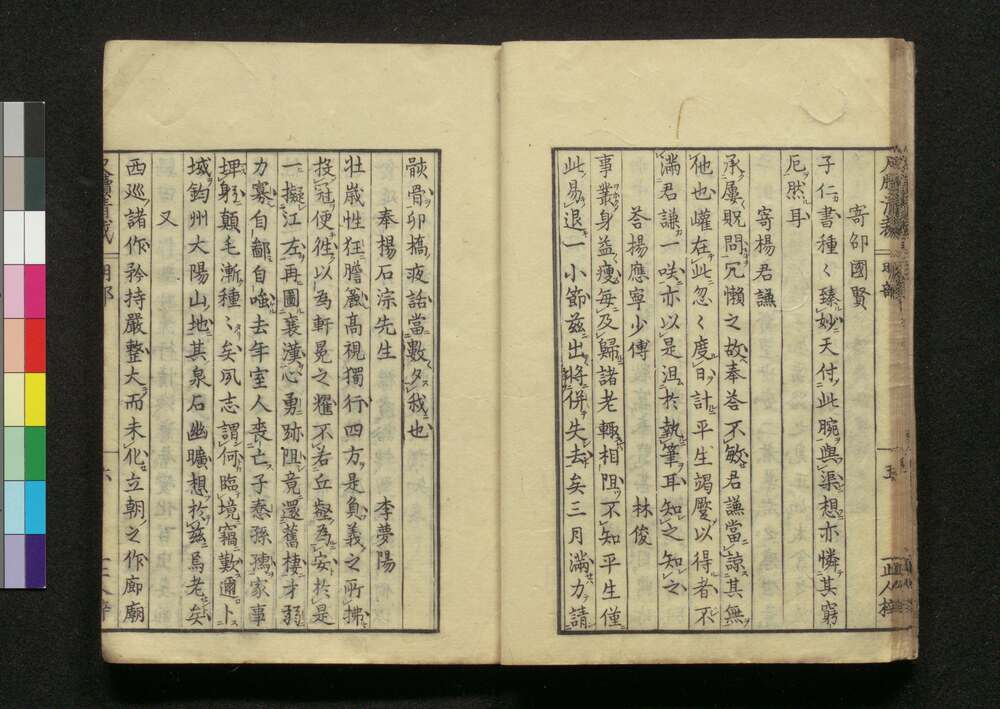 寄邵國賢
子仁書種〻臻妙天付此腕與渠想亦憐其窮
厄然耳
寄楊君謙
承屢貺問冗懶之故奉荅不敏君謙當諒其無
他也嶂在此忽〻度日計平生竭蹷以得者不
滿君謙一咲亦以是沮於執筆耳知之知之
荅楊應寧少傅
林俊
事叢身益瘦每及歸諸老輙相阻不知平生僅
此易退一小節茲出將併失去矣三月滿力請
骸骨卯槁疲話當數夕我也
奉楊石淙先生
李夢陽
壮歲性狂膽麤高視獨行四方是負義之所拂
投冠便徃以為軒冕之耀不若丘壑為安於是
一擬江左再圖襄漢心勇跡阻竟還舊棲才弱
力寡自鄙自嗤去年室人喪亡子惷孫孺家事
埤身顛毛漸種〻矣夙志謂何臨境竊歎邇卜
域鈞州大陽山地其泉石幽曠想於茲焉老矣
又
西巡諸作矜持嚴整大而未化立朝之作廊廟